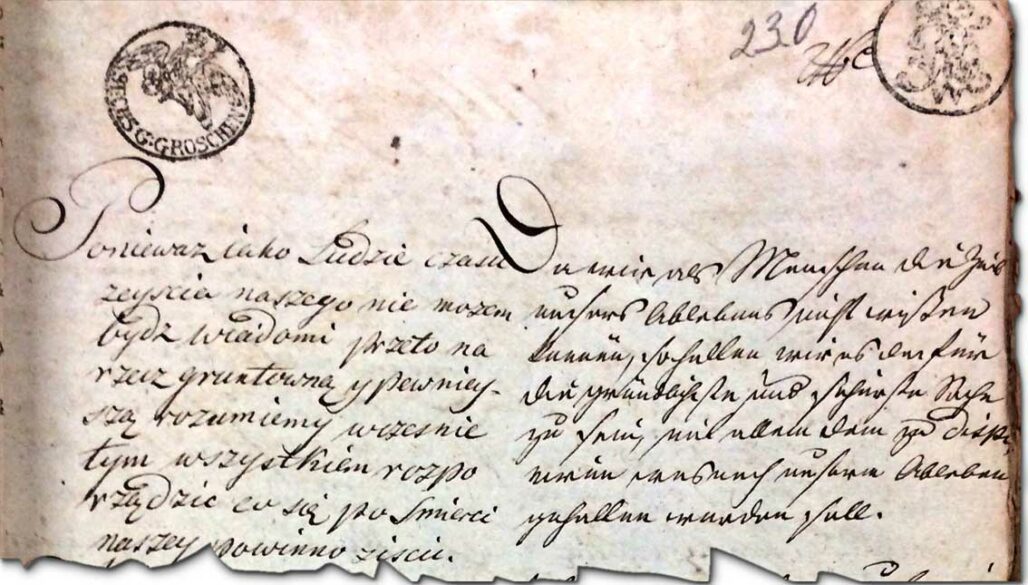 SECHS G. GROSCHEN
230
Poniewaz iako Ludzie czasu
zeyscia naszego nie mozem
bydz wiadomi przeto na
rzecz gruntowną y pewniey-
szą rozumiemy wczesnie
tym wszystkiem rozpo
rządzic co się po Smierci
naszey powinno ziscic.
Da wir als Menschen die Zeit
unsers Ablebens nicht wißen
können, so halten wir es
die gründlichste und sicherste Sache
zu sein, mit allem dem zu dispo
niren was nach unserm Ableben
gehalten werden soll.